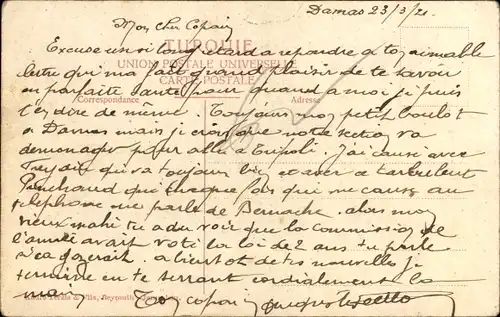 Damas 23/3/21.
Mon cher Copain
TURQUIE
Excuse un si long retard a repondre a ton aimable
UNION POSTALE UNIVERSELLE
lettre qui m'a fait grand plaisir de te savoir
CARTE POSTALE
en parfaite santé pour quand a moi je puis
Correspondance Adresse
t'en dire de même. Toujours mon petit boulot
a Damas mais je crois que notre section va
demenager pour aller a Tripoli. J'ai causé avec
qui va toujours bien et avec ce turbulent
Panchaud qui chaque fois qui me cause au
telephone me parle de Bernache. alors mon
vieux tu a du voir que la commission de
l'armée avait voté la loi de 2 ans tu parle
si ça gazerait. a bientot de tes nouvelles je
termine en te serrant cordialement la
main Ton copain
Fils, Beyrouth